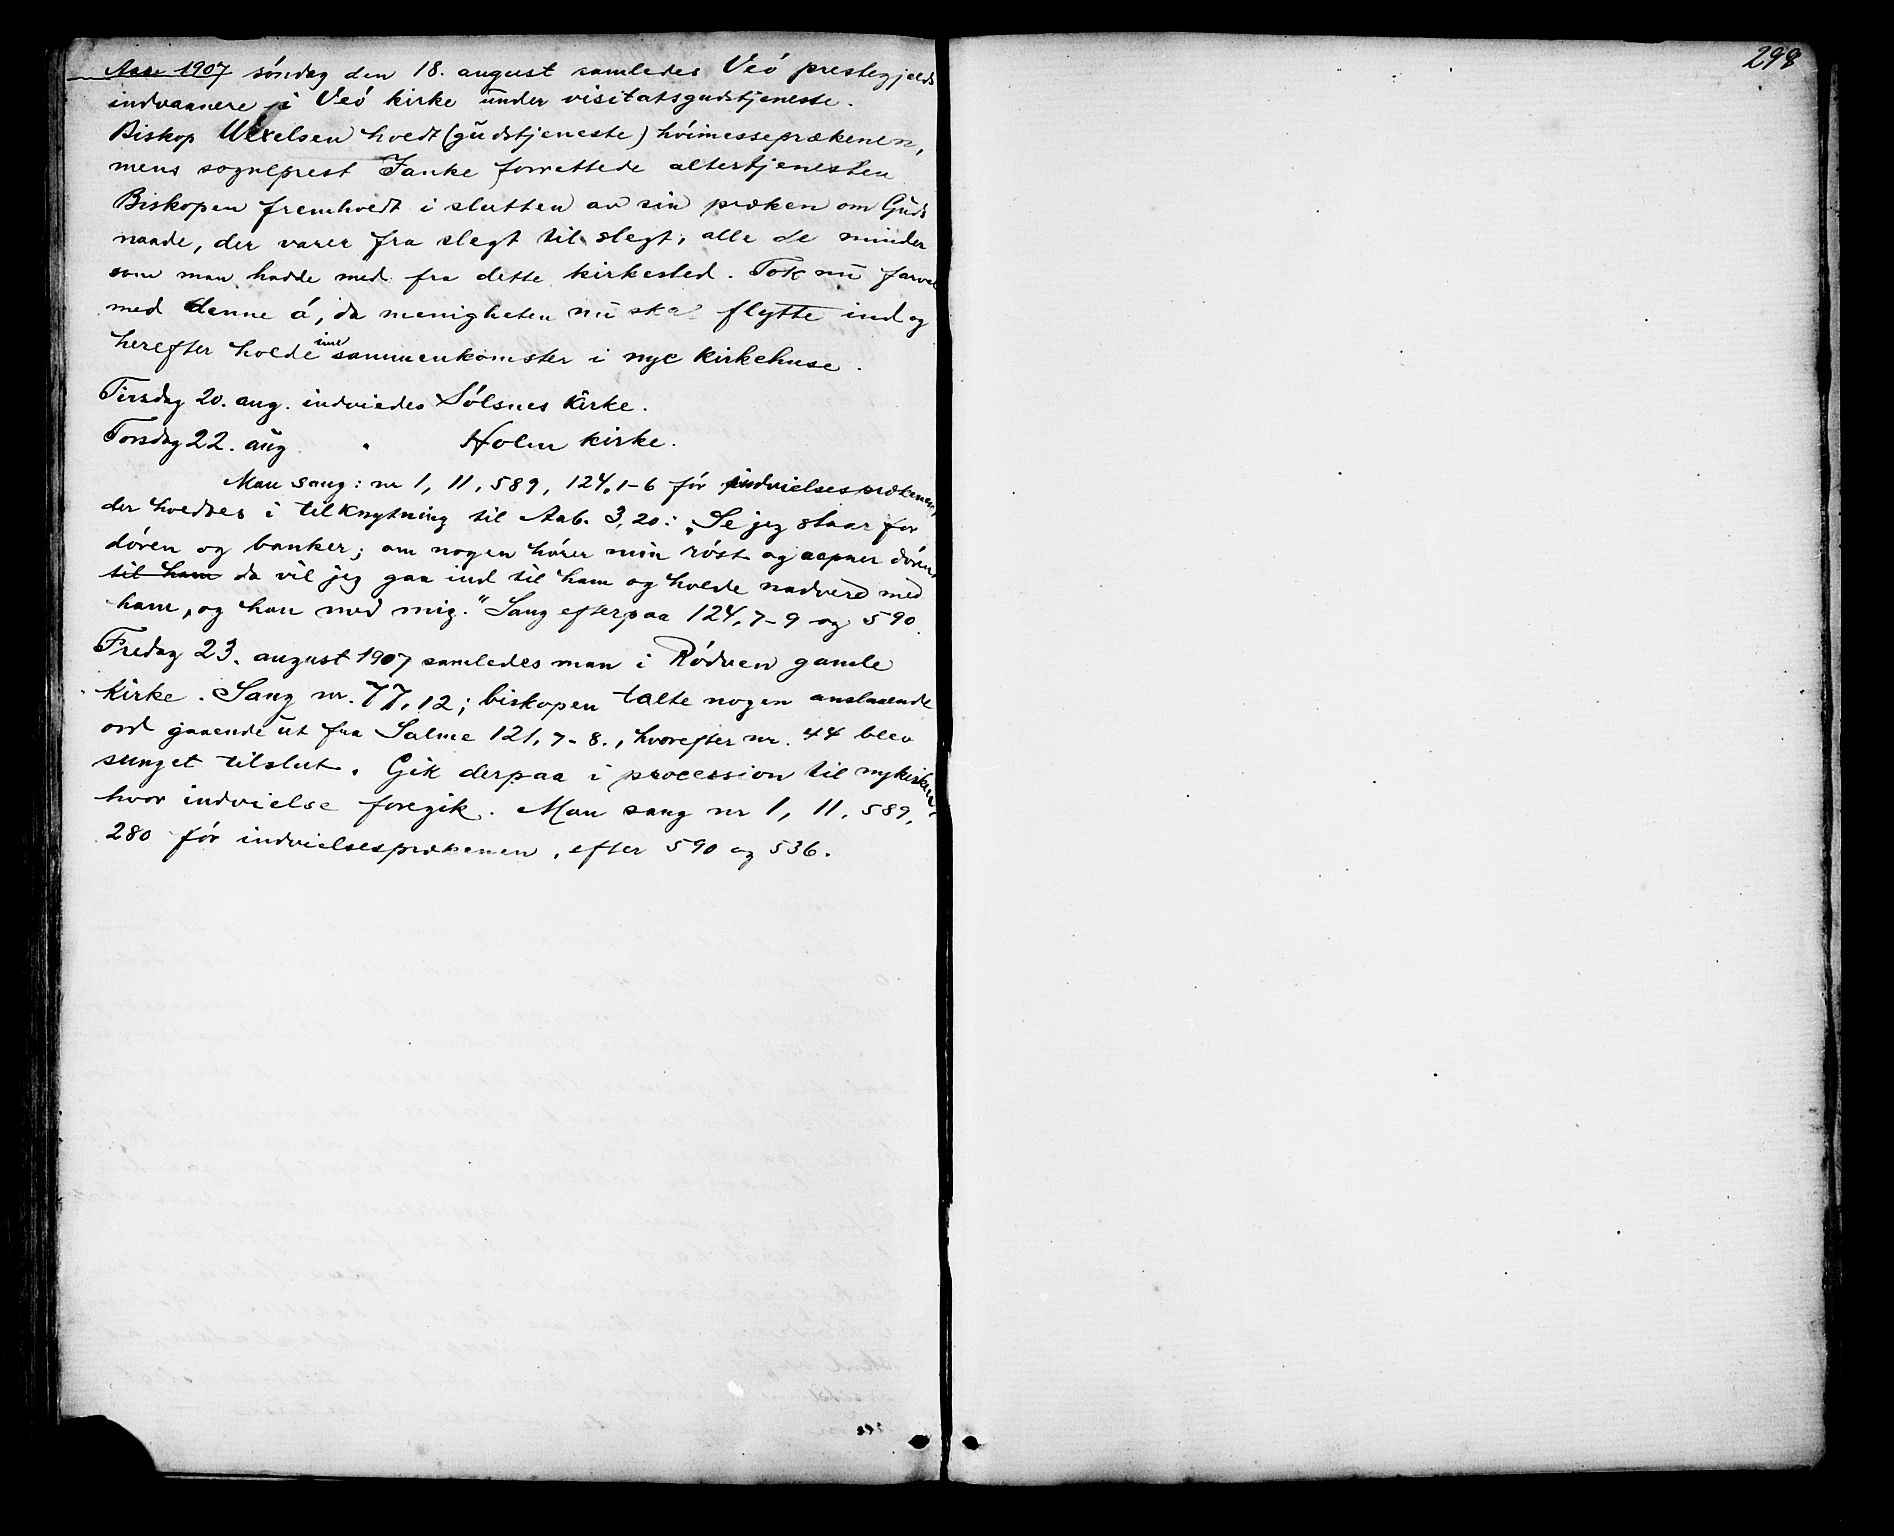 Aar 1907 søndag den 18. august samledes Veø prestegjelds
indvaanere i Veø kirke under visitatsgudstjeneste.
Biskop Wexelsen holdt (gudstjeneste) høimesseprækenen,
mens sogneprest Janke forrettede altertjenesten
Biskopen fremholdt i slutten av sin præken om Guds
naade, der varer fra slegt til slegt, alle de minder
som man hadde med fra dette kirkested. Tok nu farvel
med denne ø, da menigheten nu skal flytte ind og
herefter holde sine sammenkomster i nye kirkehuse.
Tirsdag 20. aug. indviedes Sølsnes kirke.
Torsdag 22. aug " Holm kirke.
Man sang: nr 1, 11, 589, 124,1-6 før indvielsesprækenen,
der holdtes i tilknytning til Aab. 3,20: „Se jeg staar for
døren og banker; om nogen hører min røst og aapner døren,
til ham da vil jeg gaa ind til ham og holde nadverd med
ham, og han med mig." Sang efterpaa 124,7-9 og 590.
Fredag 23. august 1907 samledes man i Rødven gamle
kirke. Sang nr. 77,12; biskopen talte nogen anslaaende
ord gaaende ut fra Salme 121,7-8., hvorefter nr. 44 blev
sunget tilslut. Gik derpaa i procession til nykirken,
hvor indvielse foregik. Man sang nr 1, 11, 589,
280 før indvielsesprækenen, efter 590 og 536.
298